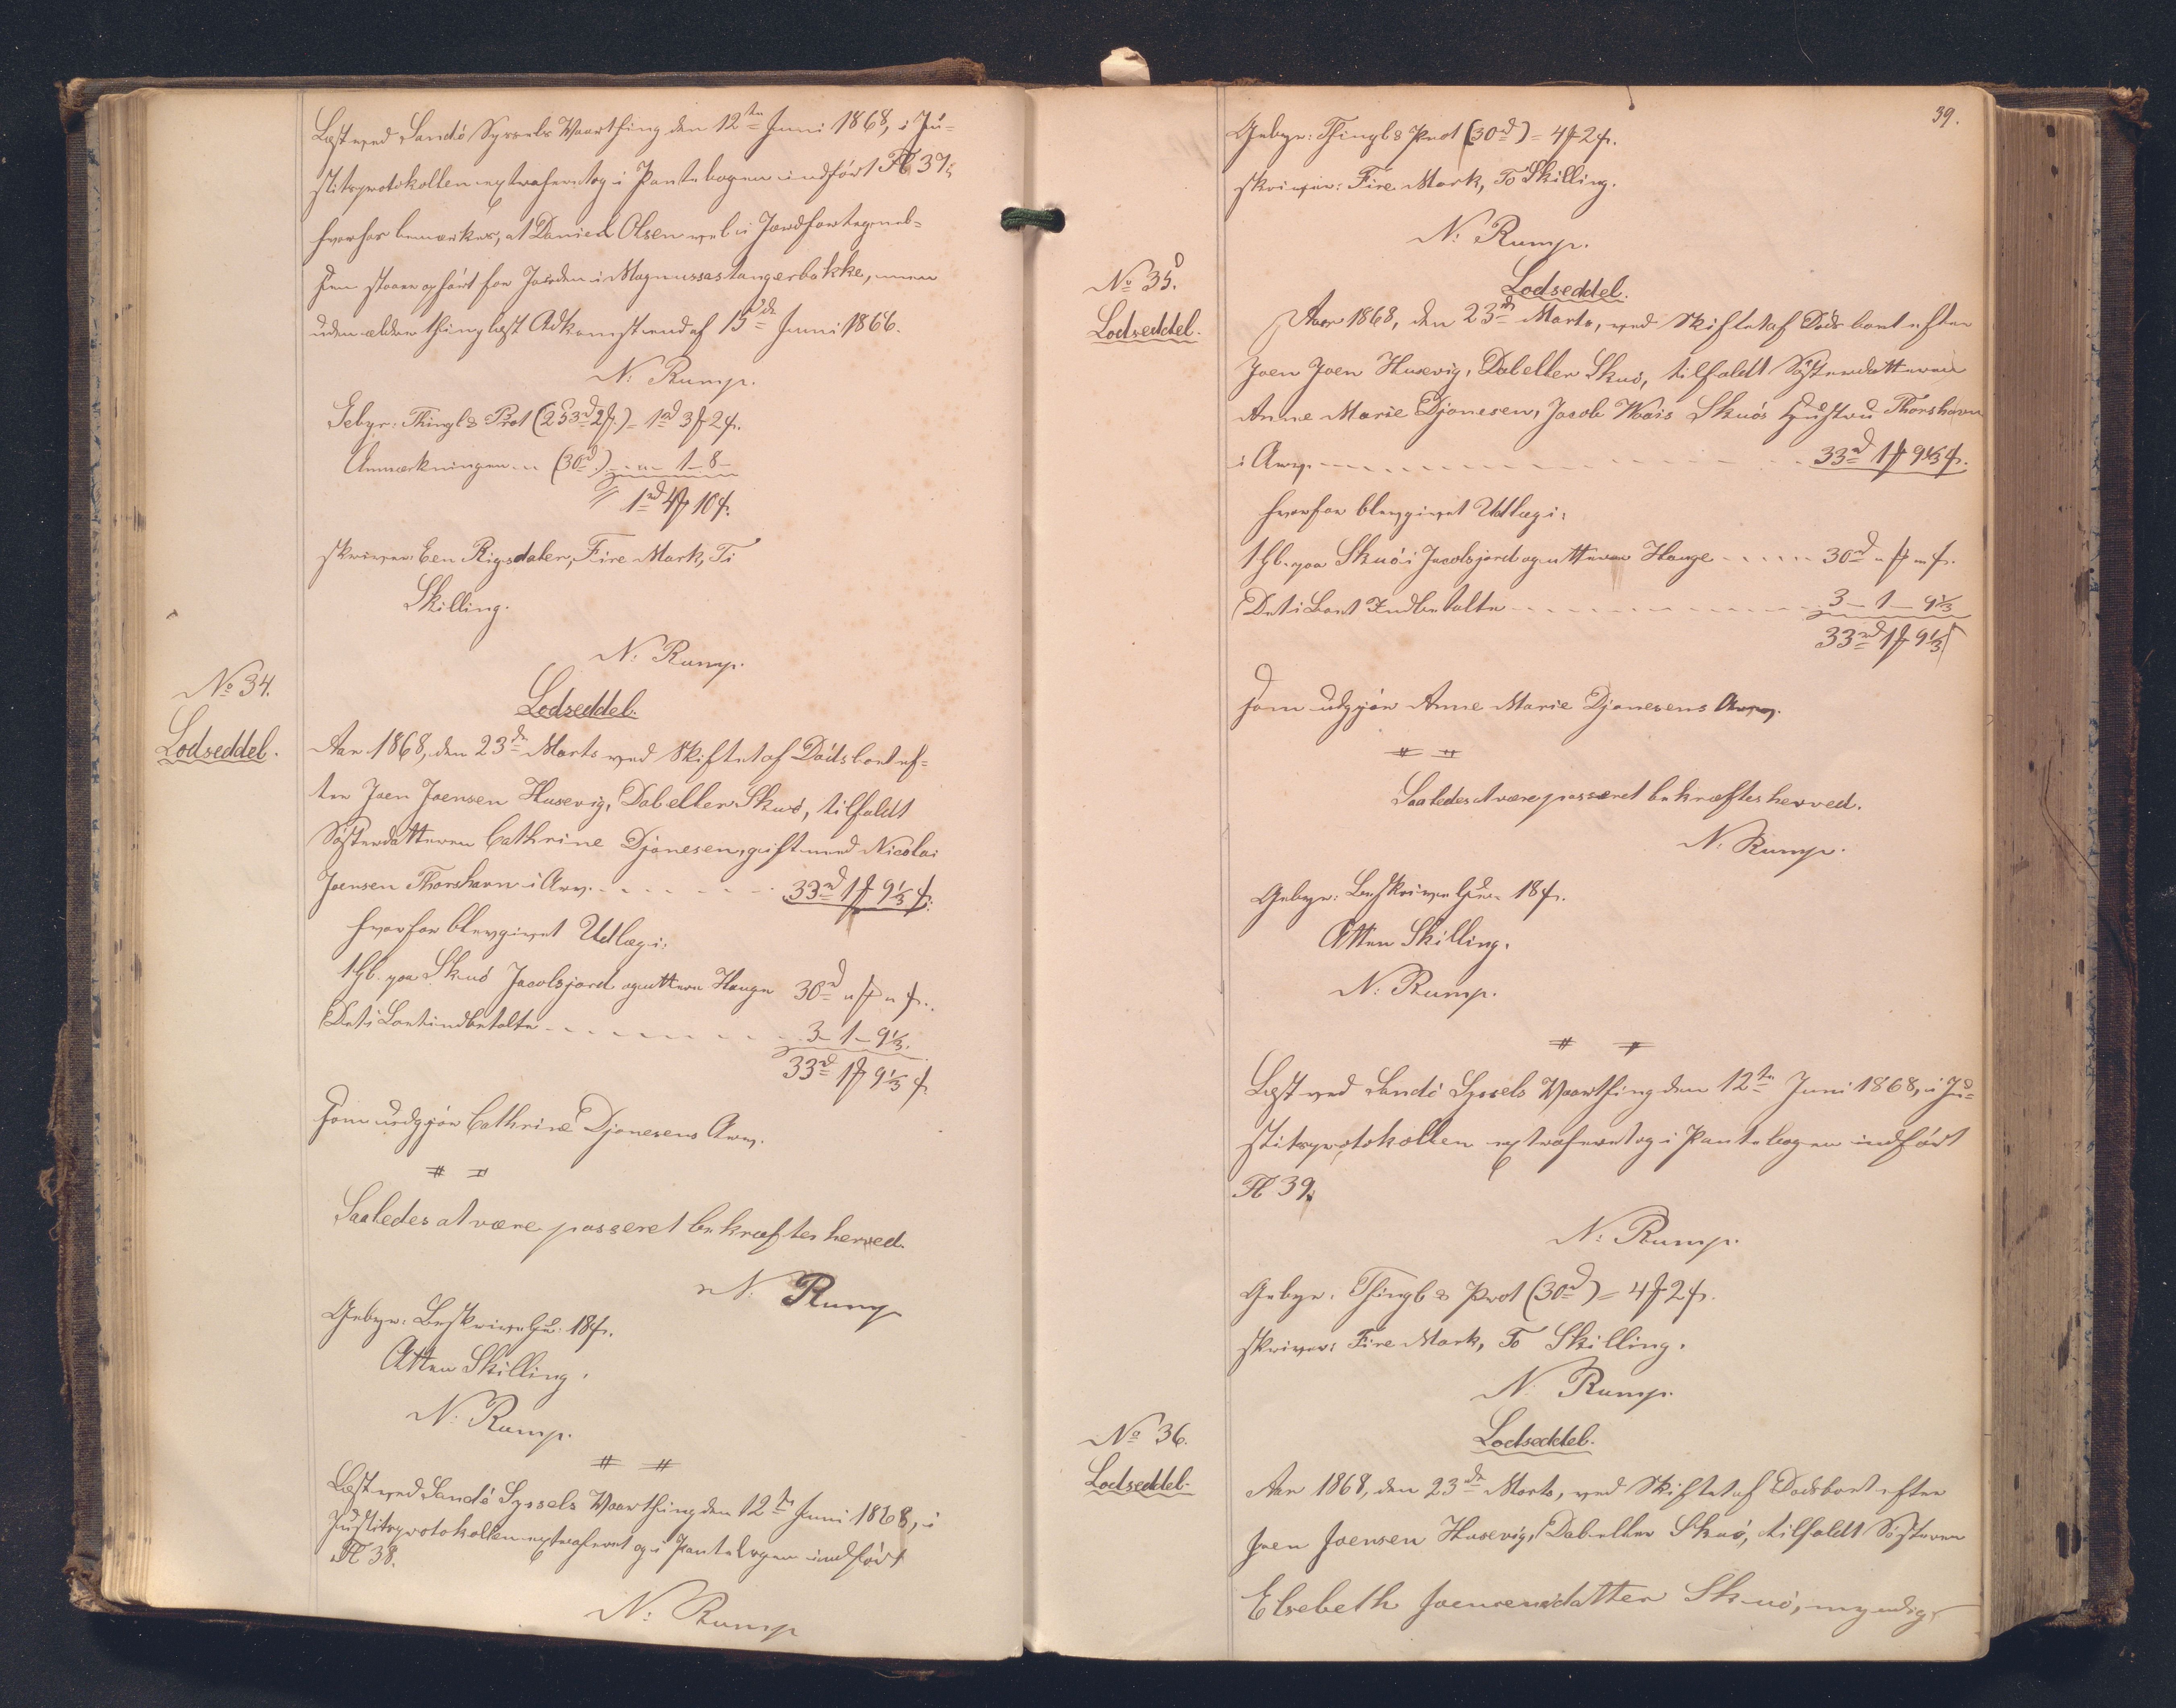 Læst ved Sandö Syssels Vaarthing den 12te Juni 1868, i Ju-
stitsprotokollen extraheret og i Pantebogen indført Fol 37;
hvorhos bemærkes, at Daniel Olsen vel i Jordfortegnel-
sen staaer opført for Jorden i Magnussastangerbakke, men
uden ældre thinglæst Adkomst end af 15de Juni 1866.
N: Rump.
Gebyr: Thingl & Prot (253rd 2ß.) = 1rd 3ꝳ 2ß.
Anmærkningen .. (30rd) - - - 1 - 8 -
1rd 4ꝳ 10ß.
skriver: Een Rigsdaler, Fire Mark, Ti
Skilling.
N: Rump.
No 34.
Lodseddel.
Lodseddel.
Aar 1868, den 23de Marts ved Skiftet af Dödsboet ef-
ter Joen Joensen Husevig, Dal eller Skuö, tilfaldt
Søsterdatteren Cathrine Djonesen, gift med Nicolai
Joensen Thorshavn i Arv - - - - - - 33rd 1ꝳ 9⅓ß.
hvorfor blev givet Udlæg i:
1 Gl. paa Skuö Jacobsjord og uttere Hauge 30rd " ꝳ " ß.
Det i Boet indbetalte - - - - - - - 3 - 1 - 9⅓.
33rd 1ꝳ 9⅓ ß.
som udgjør Cathrine Djonesens Arv.
Saaledes at være passeret bekræftes herved.
N. Rump
Gebyr: Beskrivelse 18ß.
Atten Skilling.
N: Rump.
Læst ved Sandö Syssels Vaarthing den 12te Juni 1868, i
Justitsprotokollen extraheret og i Pantebogen indført
Fol 38.
N: Rump
39.
Gebyr: Thingl & Prot (30rd) = 4ꝳ 2ß.
skriver: Fire Mark, To Skilling.
N: Rump.
No 35.
Lodseddel.
Lodseddel.
Aar 1868, den 23de Marts, ved Skiftet af Dödsboet efter
Joen Joen Husevig, Dal eller Skuö, tilfaldt Søsterdatteren
Anne Marie Djonesen, Jacob Skuös Hustru Thorshavn
i Arv - - - - - - 33rd 1ꝳ 9⅓ß.
hvorfor blev givet Udlæg i:
1 Gl. paa Skuö i Jacobsjord og uttere Hauge - - - - 30rd " ꝳ " ß.
Det i Boet Indbetalte - - - - - - 3 - 1 - 9⅓
33rd 1ꝳ 9⅓ß
som udgjør Anne Marie Djonesens Arv.
Saaledes at være passeret bekræftes herved.
N. Rump.
Gebyr: Beskrivelse 18ß.
Atten Skilling.
N: Rump.
Læst ved Sandö Syssels Vaarthing den 12te Juni 1868, i Ju-
stitsprotokollen extraheret og i Pantebogen indført
Fol 39.
N: Rump.
Gebyr: Thingl & Prot (30rd) = 4ꝳ 2ß.
skriver: Fire Mark, To Skilling.
N. Rump.
No 36.
Lodseddel.
Lodseddel.
Aar 1868, den 23de Marts, ved Skiftet af Dödsboet efter
Joen Joensen Husevig, Dal eller Skuö, tilfaldt Søsteren
Elsebeth Joensensdatter Skuö, myndig,